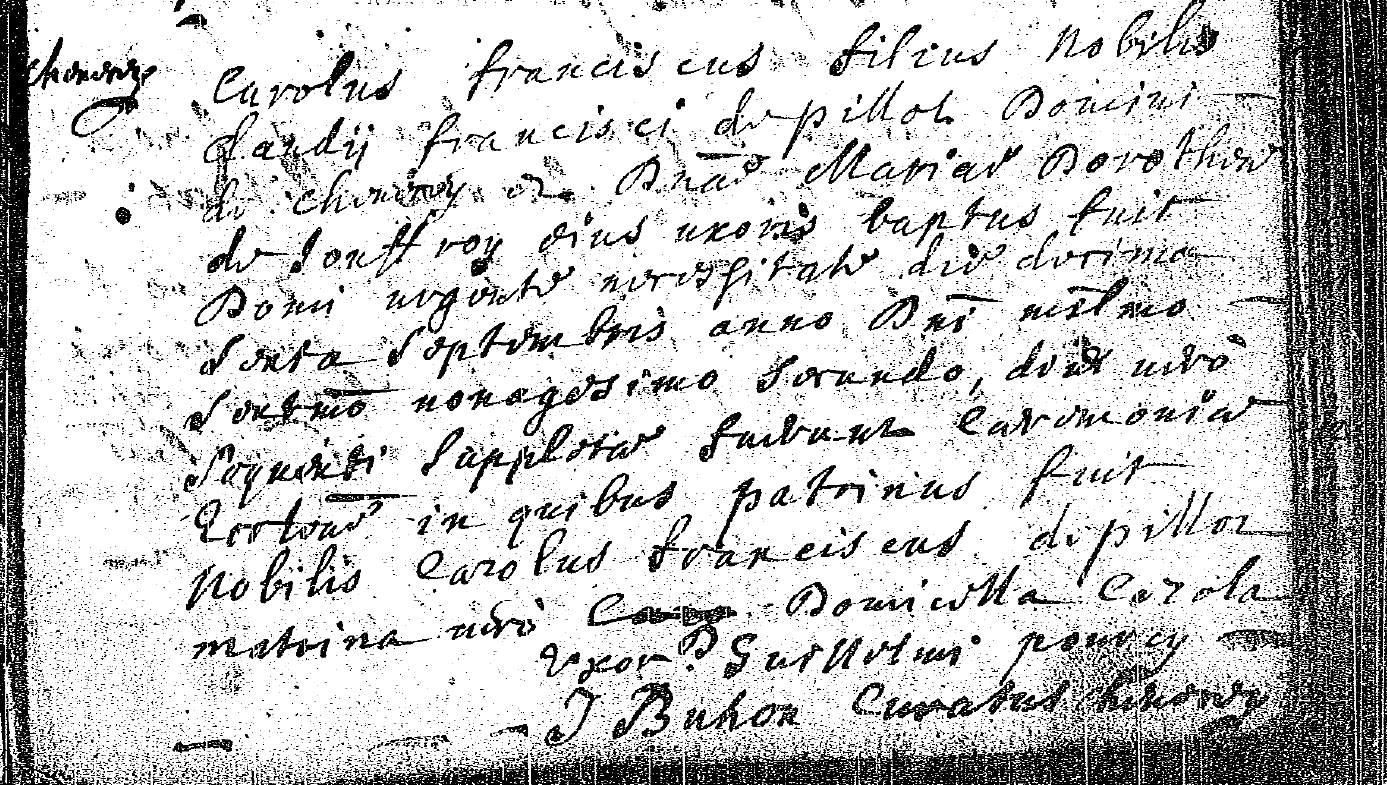 Chenevrey
Carolus franciscus filius Nobilis
Claudij francisci de pillot Domini
de chenevrey et Dnae Mariae Dorotheae
de Jouffroy eius uxoris baptus fuit
Domi urgente necessitate die decima
Sexta Septembris anno Dni millmo
Sextmo nonagesimo Secundo, die vero
Sequenti Suppletae fuerunt Caeremoniae
Ecclae in quibus patrinus fuit
Nobilis Carolus franciscus de pillot
matrina vero Domicella Carola
Uxor D. Guillelmi
J Buhon Curatus chenevrey